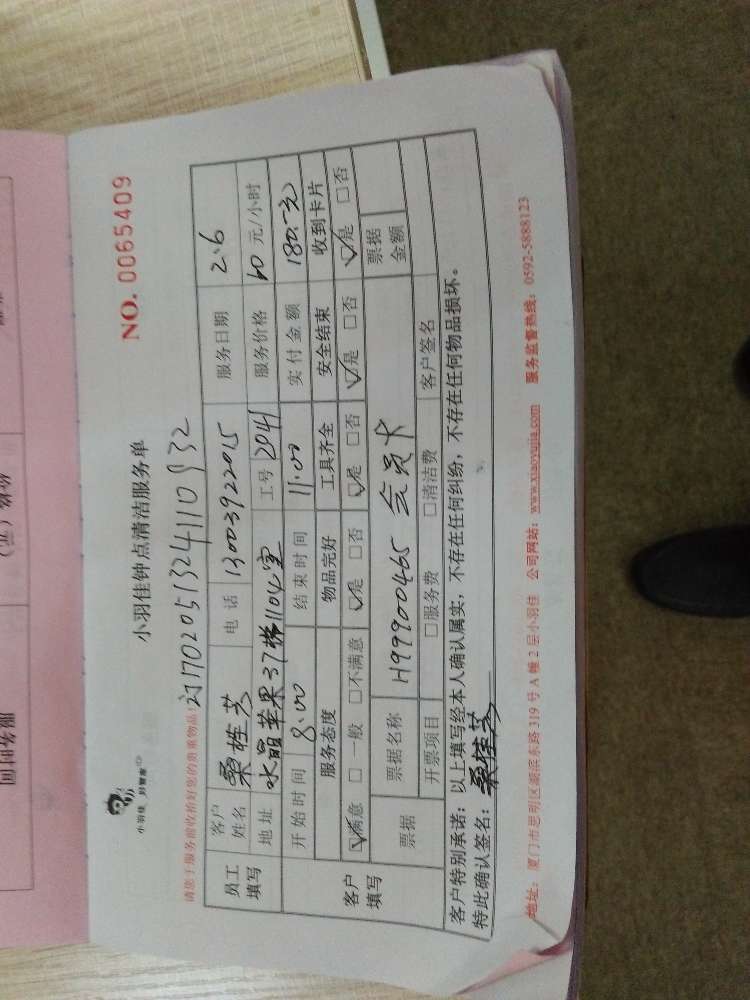 小羽佳 好管家
小羽佳钟点清洁服务单
NO. 0065409
请您于服务前收拾好您的贵重物品!
员工填写
客户姓名 桑桂芝 电话 13003922015 服务日期 2.6
地址 水晶苹果37梯1104室 工号 2041 服务价格 60 元/小时
开始时间 8:00 结束时间 11:00 实付金额 180.-元
客户填写
服务态度 物品完好 工具齐全 安全结束 收到卡片
☑满意 □一般 □不满意 ☑是 □否 ☑是 □否 ☑是 □否 ☑是 □否
票据 票据名称 H99900465 会员卡 票据金额
开票项目 □服务费 □清洁费 客户签名
客户特别承诺:以上填写经本人确认属实,不存在任何纠纷,不存在任何物品损坏。
特此确认签名:桑桂芝
地址:厦门市思明区湖滨东路 319 号 A 幢 2 层小羽佳 公司网站:www.xiaoyujia.com 服务监督热线:0592-5888123